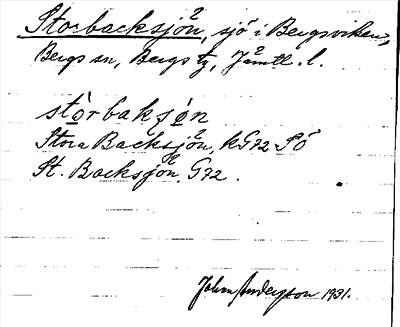 Storbacksjön, sjö i Bergsviken,
Bergs sn, Bergs tg, Jämtl. l.
stòrbakʂøn
Stora Backsjön, kG72 Sö
St. Backsjön, G72.
John Anderzon 1931.